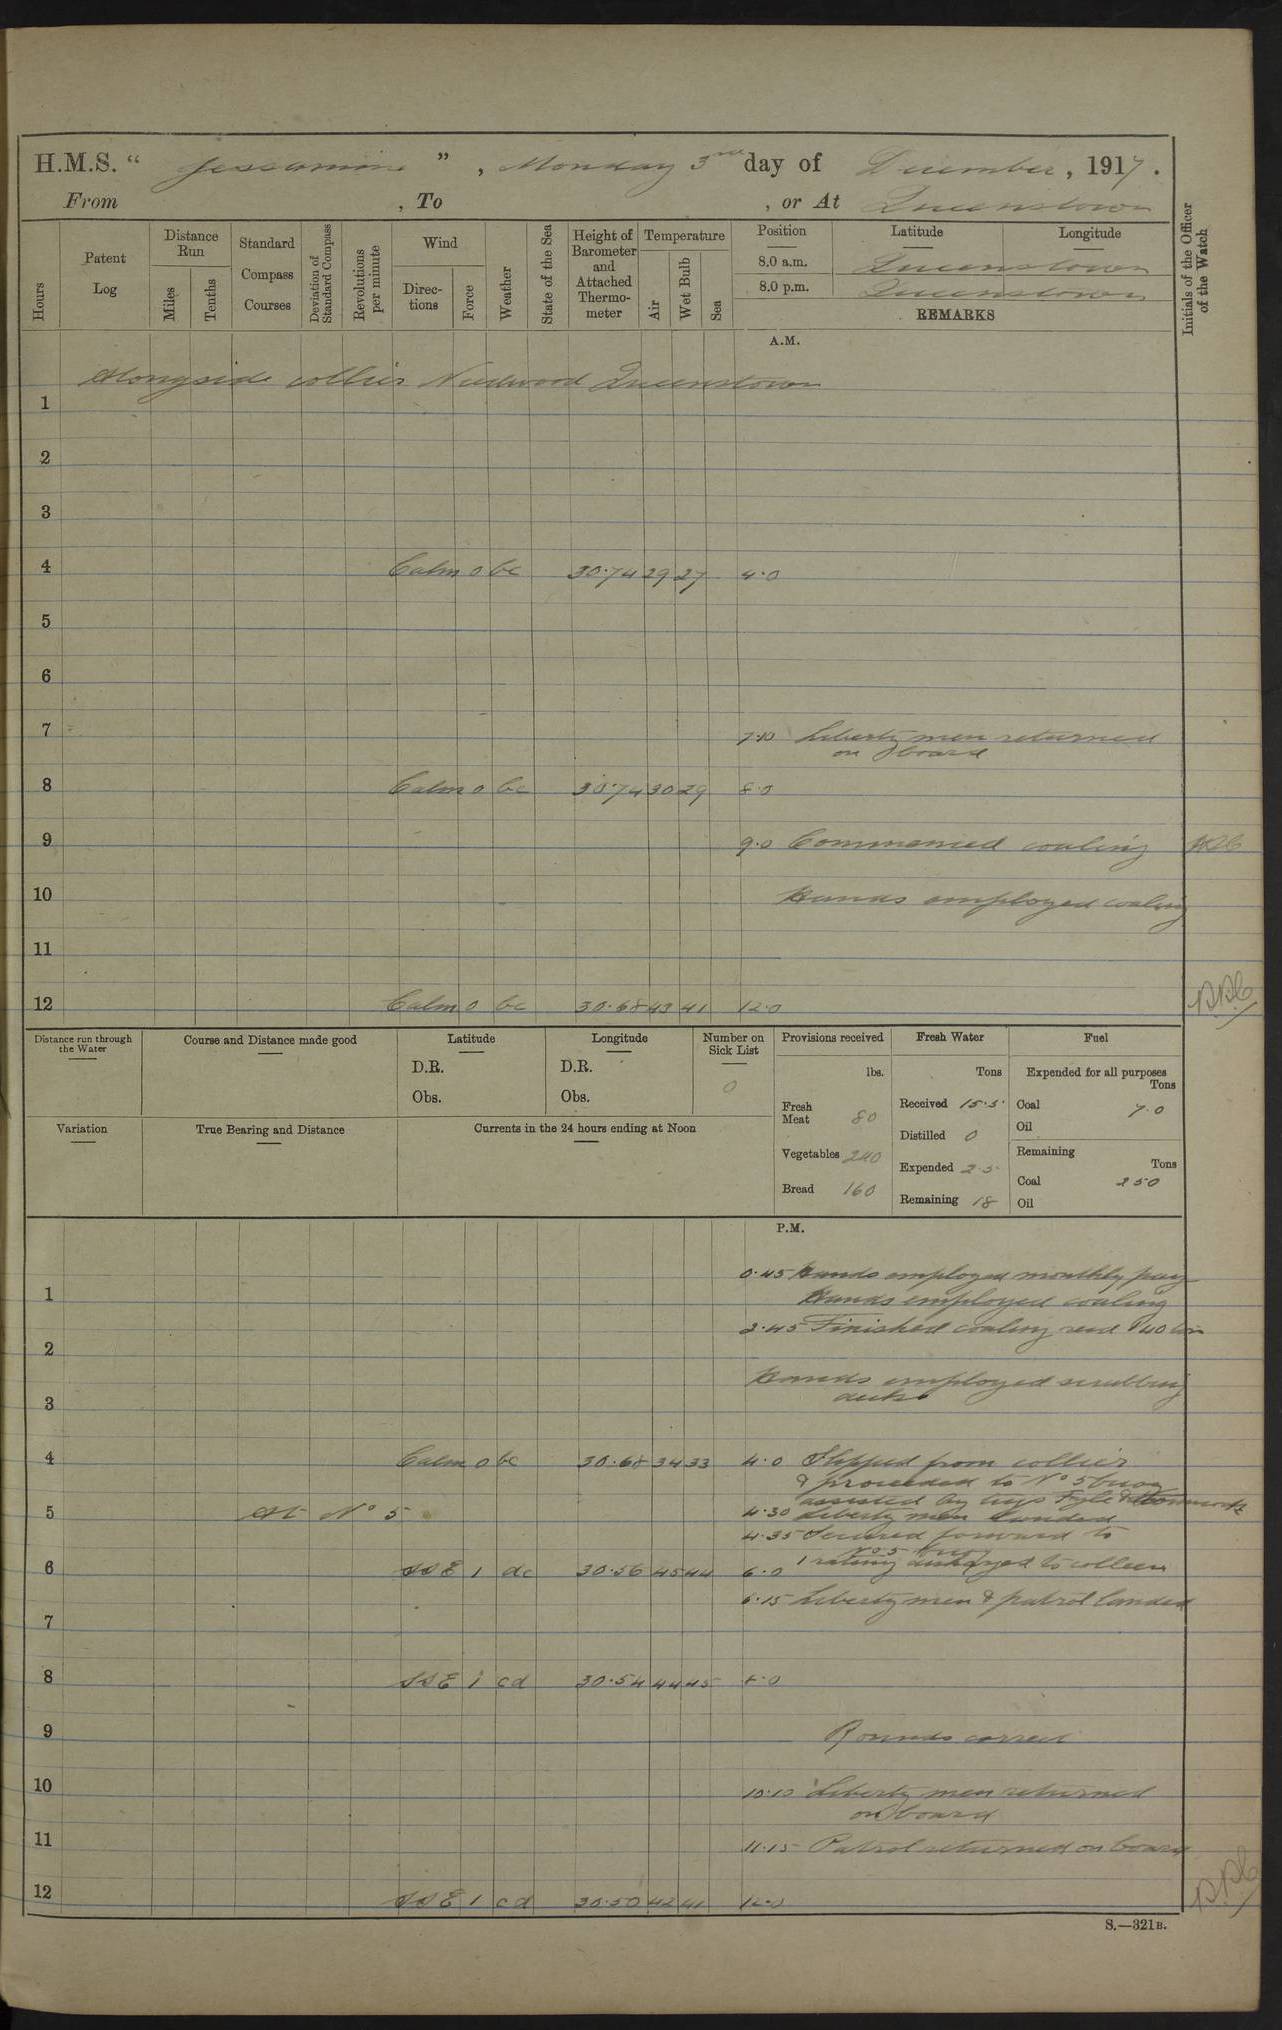 H.M.S. " Jessamine ", Monday 3rd day of December, 1917.
From , To , or At Queenstown
Hours
Patent Log
Distance Run
Miles
Tenths
Standard Compass Courses
Deviation of Standard Compass
Revolutions per minute
Wind
Directions
Force
Weather
State of the Sea
Height of Barometer and Attached Thermometer
Temperature
Air
Wet Bulb
Sea
Position
Latitude
Longitude
8.0 a.m. Queenstown
8.0 p.m. Queenstown
REMARKS
Initials of the Officer of the Watch
A.M.
Alongside collier Queenstown
1
2
3
4 Calm 0 bc 30.74 29 27 4.0
5
6
7 7.10 Liberty men returned
on board
8 Calm 0 bc 30.74 30 29 8.0
9 9.0 Commenced coaling
10 Hands employed coaling
11
12 Calm 0 bc 30.68 43 41 12.0
Distance run through the Water
Course and Distance made good
Latitude
D.R.
Obs.
Longitude
D.R.
Obs.
Number on Sick List
0
Variation
True Bearing and Distance
Currents in the 24 hours ending at Noon
Provisions received
lbs.
Fresh Meat 80
Vegetables 240
Bread 160
Fresh Water
Tons
Received 15.5
Distilled 0
Expended 2.5
Remaining 18
Fuel
Expended for all purposes
Tons
Coal 7.0
Oil
Remaining
Tons
Coal 250
Oil
P.M.
0.45 Hands employed monthly pay
1 Hands employed coaling
2.45 Finished coaling recd 140 tons
2
Hands employed scrubbing
3 decks
4 Calm 0 bc 30.68 34 33 4.0 Slipped from collier
& proceeded to No 5 buoy
assisted by tugs
5 At No 5 4.30 Liberty men landed
4.35 Secured forward to
No 5 buoy
6 SSE 1 dc 30.56 45 44 6.0 1 rating discharged to Colleen
6.15 Liberty men & patrol landed
7
8 SSE 1 cd 30.54 44 45 8.0
9 Rounds correct
10 10.10 Liberty men returned
on board
11 11.15 Patrol returned on board
12 SSE 1 cd 30.50 42 41 12.0
S.—321B.